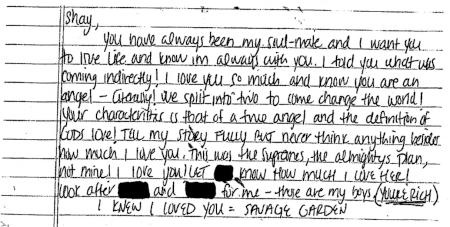 Shay,
you have always been my soul-mate and I want you
to live life and know im always with you. I told you what was
coming indirectly! I love you so much and know you are an
angel - Literally! we split into two to come change the world!
your characteristics is that of a true angel and the definition of
GODS love! TELL my story FULLY BUT never think anything besides
how much I love you. This was the supremes, the almightys plan,
not mine! I love you! LET know HOW MUCH I LOVE HER!
look after and for me - those are my boys. (YOURE RICH)
I KNEW I LOVED YOU = SAVAGE GARDEN